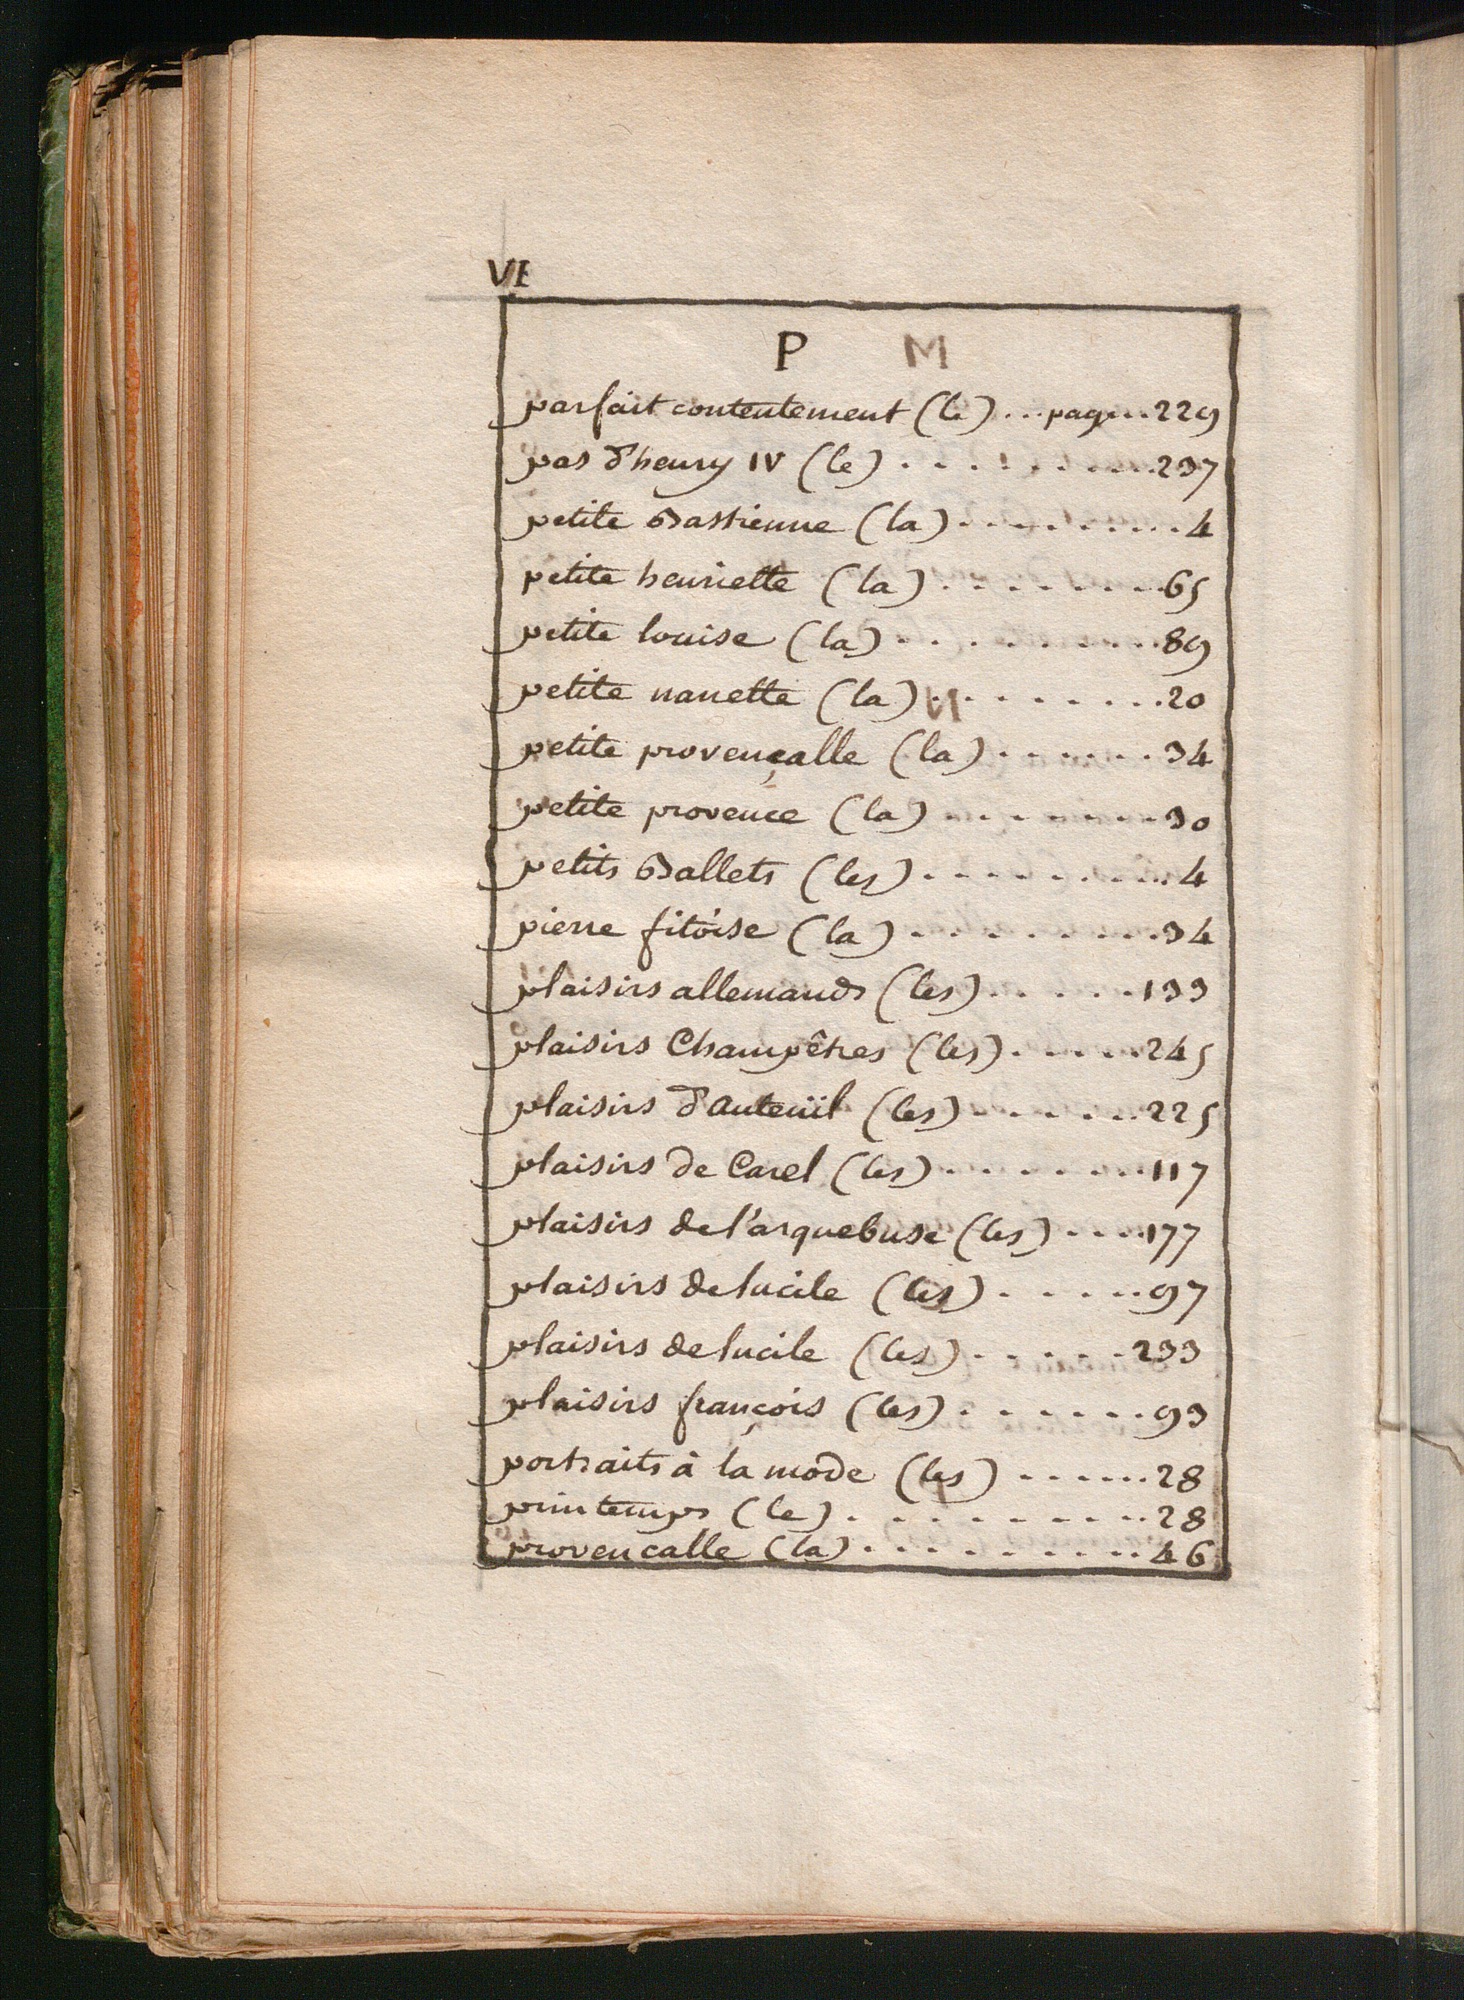 VI
P
parfait contentement (le) ... page...229
pas d'henry IV (le) . . . . . . . . . . 237
petite Bastienne (la) . . . . . . . . . 4
petite henriette (la) . . . . . . . . 65
petite louise (la) . . . . . . . . . . 89
petite nanette (la) . . . . . . . . 20
petite provençalle (la) . . . . . . . 34
petite provence (la) . . . . . . . . 30
petits Ballets (les) . . . . . . . . . . 4
pierre fitoise (la) . . . . . . . . . 34
plaisirs allemands (les) . . . . . 133
plaisirs Champêtres (les) . . . . . 245
plaisirs d'Auteüil (les) . . . . . . . 225
plaisirs de Carel (les) . . . . . . . . 117
plaisirs de l'arquebuse (les) . . . . 177
plaisirs de lucile (les) . . . . . . 97
plaisirs de lucile (les) . . . . . . 233
plaisirs françois (les) . . . . . . . 93
portraits à la mode (les) . . . . . . 28
printemps (le) . . . . . . . . . . 28
provencalle (la) . . . . . . . . . . 46